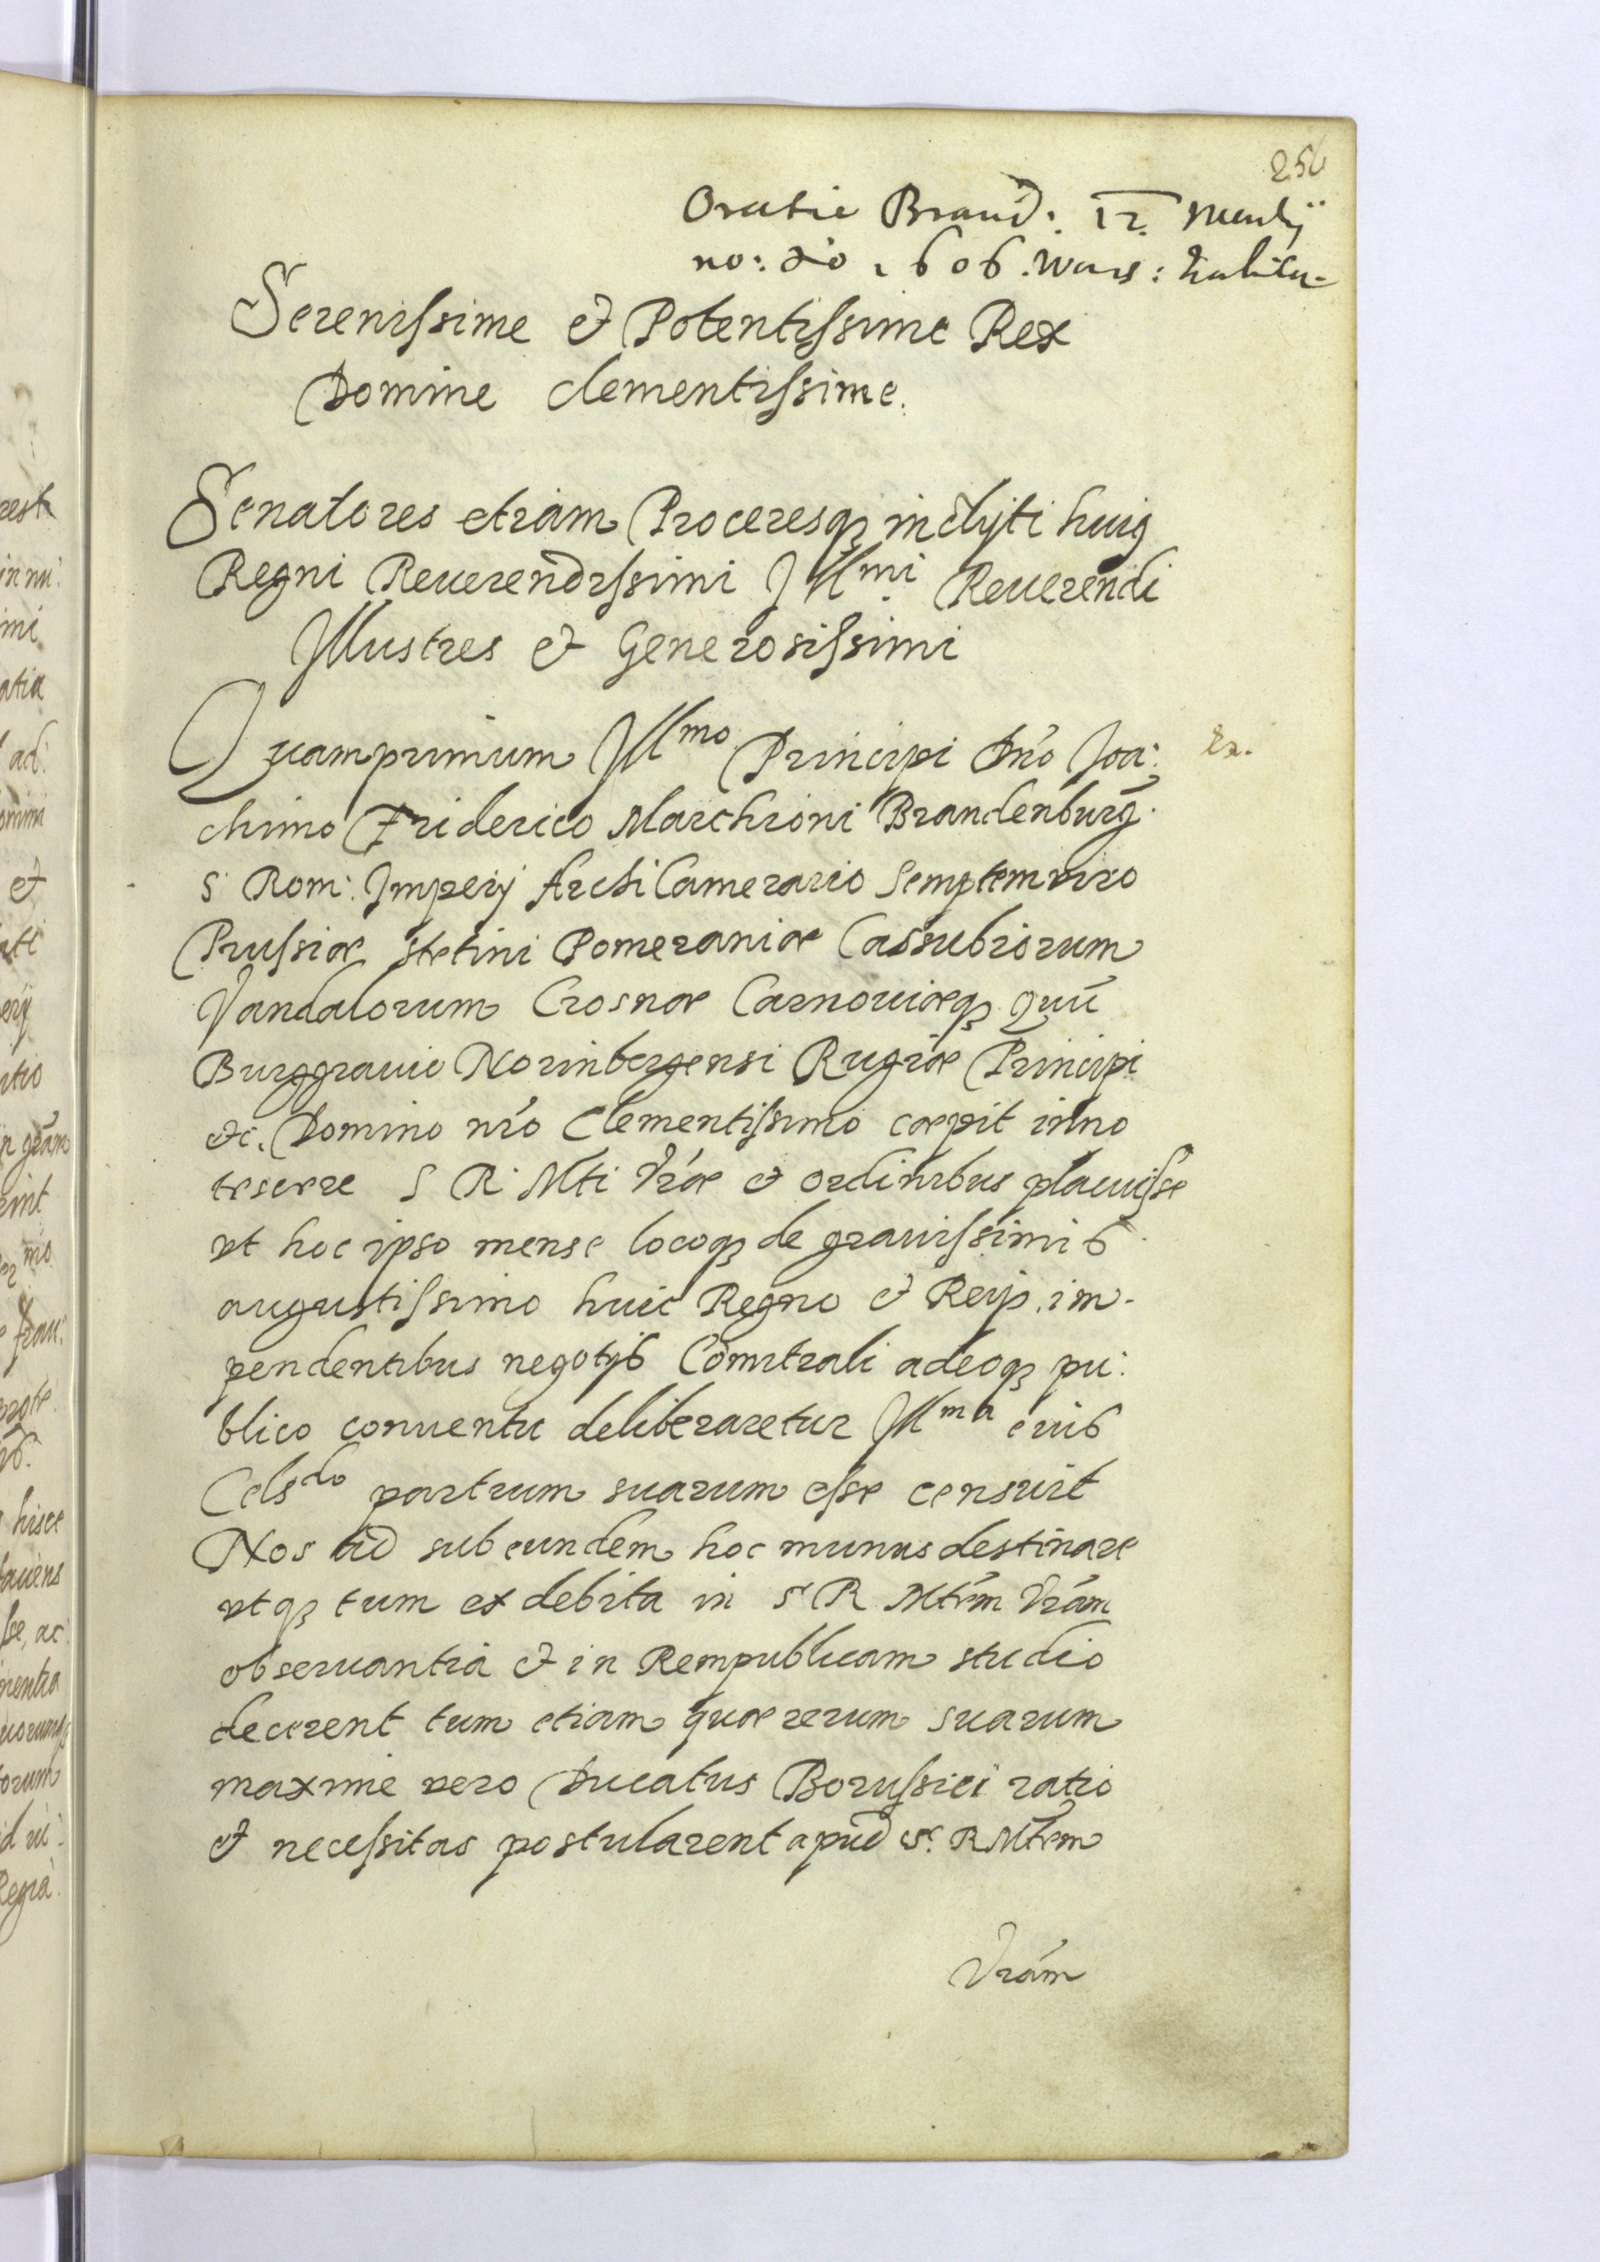 256
Oratio Brand: 12. Martij
no: do 1606. Wars: habita.
Serenissime & Potentissime Rex
Domine clementissime.
Senatores etiam Proceresq inclyti huig
Regni Reuerendissimi Jllmi Reuerendi
Jllustres & Generosissimi
Quamprimum Jllmo Principi Dn̄o Joa:
chimo Friderico Marchioni Brandenburg.
S Rom: Jmperij ArchiCamerario Semptemviro
Prussiæ Stetini Pomeraniæ Cassubiorum
Vandalorum Crosnæ Carnouiæq Duci
Burggrauio Norinbergensi Rugiæ Principi
&c. Domino nr̄o Clementissimo cæpit inno
tescere S R Mti Vr̄æ & ordinibus placuisse
vt hoc ipso mense locoq de grauissimis
augustissimo huic Regno & Reip. im-
pendentibus negotijs Comitiali adeoq pu:
blico conuentu deliberaretur Jllma eius
Celsdo partium suarum esse censuit
Nos ad subeundem hoc munus destinare
vtq tum ex debita in S R Mtem Vr̄am
obseruantiâ & in Rempublicam studio
decerent tum etiam quæ rerum suarum
maxime vero Ducatus Borussici ratio
& necessitas postularent apud S. R Mtem
Vr̄am